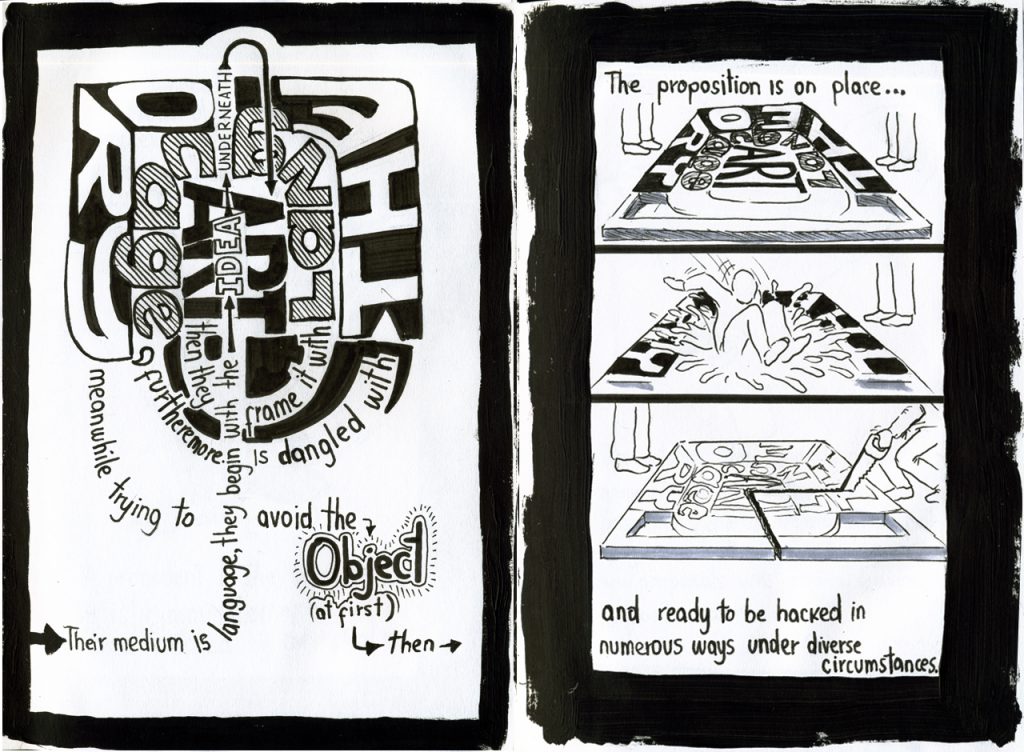 Their medium is
language, they begin with the
IDEA
UNDERNEATH
ART
then they
frame it with
Language
furtheremore
is dangled with
meanwhile trying to
avoid the
Object
(at first)
then
The proposition is on place...
ART
and ready to be hacked in
numerous ways under diverse
circumstances.